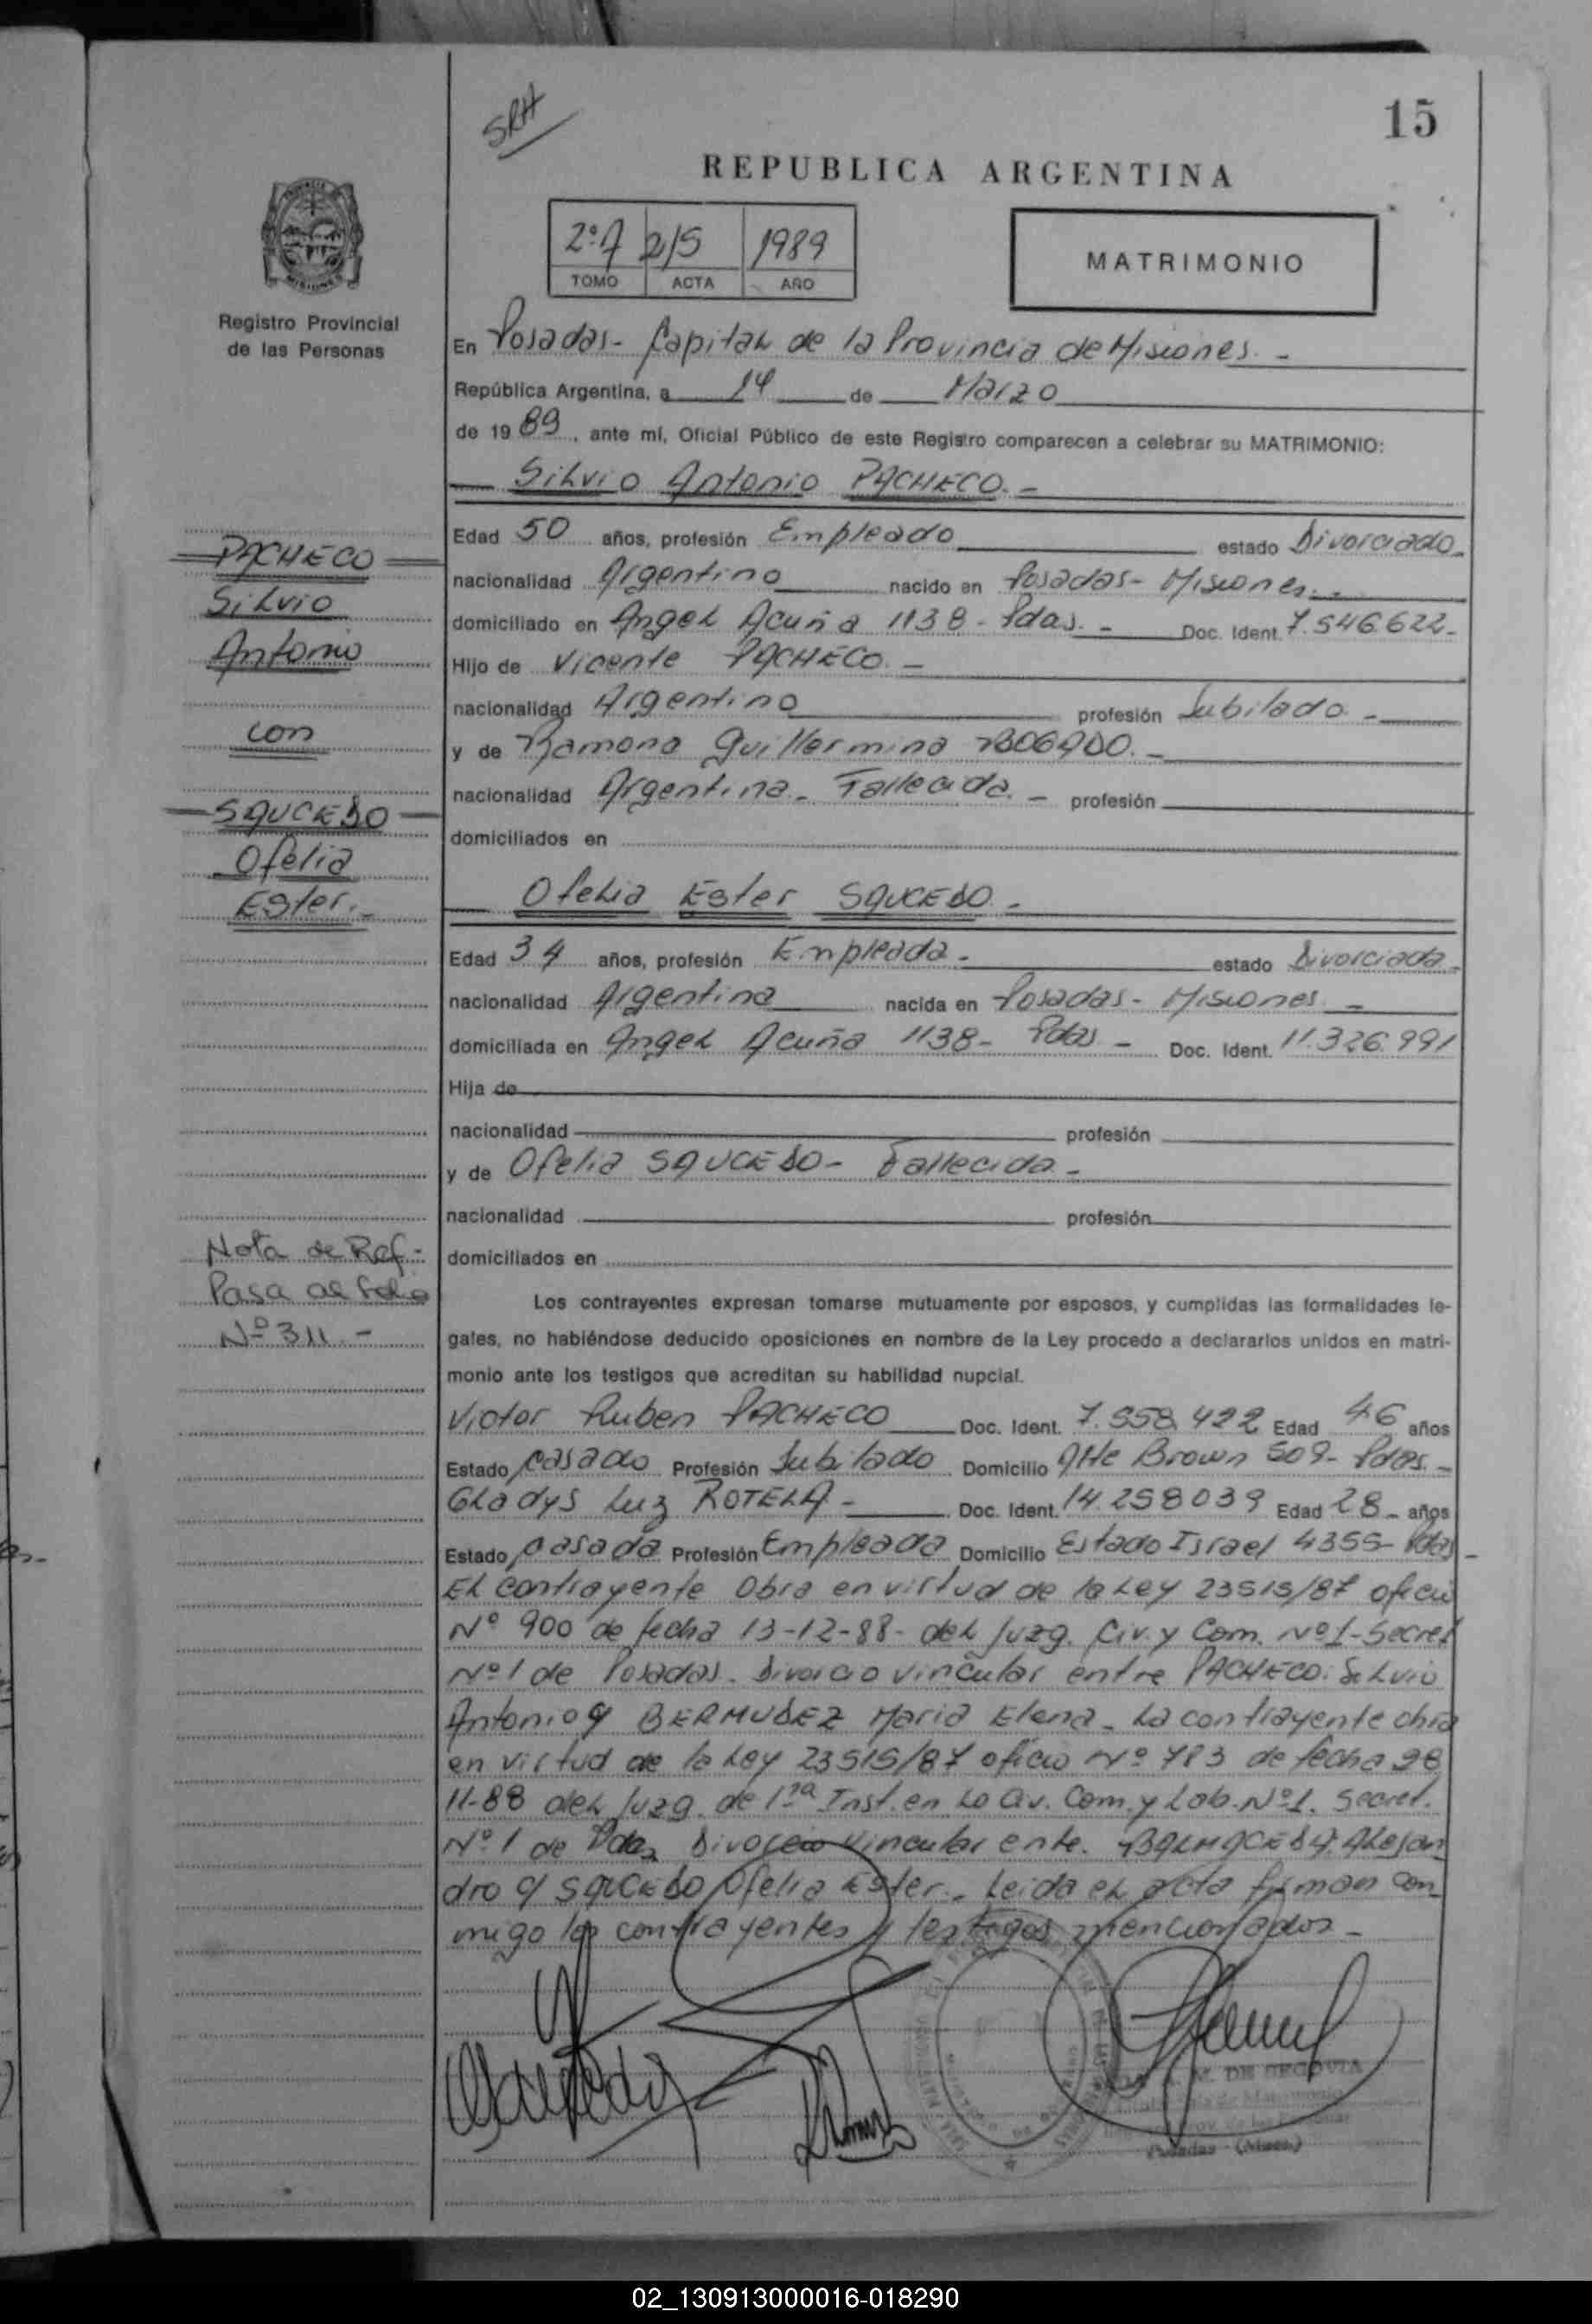 SRH
15
REPUBLICA ARGENTINA
2º A 215 1989
TOMO ACTA AÑO
MATRIMONIO
MISIONES
Registro Provincial
de las Personas
En Posadas- Capital de la Provincia de Misiones.-
República Argentina, a 14 de Marzo
de 1989, ante mí, Oficial Público de este Registro comparecen a celebrar su MATRIMONIO:
Silvio Antonio PACHECO.-
Edad 50 años, profesión Empleado estado Divorciado
nacionalidad Argentino nacido en Posadas- Misiones.-
domiciliado en Angel Acuña 1138- Pdas.- Doc. Ident. 7.546.622-
Hijo de Vicente PACHECO.-
nacionalidad Argentino profesión Jubilado.-
y de Ramona Guillermina BOGADO.-
nacionalidad Argentina- Fallecida.- profesión
domiciliados en
Ofelia Ester SAUCEDO.-
Edad 34 años, profesión Empleada- estado Divorciada-
nacionalidad Argentina nacida en Posadas- Misiones-
domiciliada en Angel Acuña 1138- Pdas- Doc. Ident. 11.326.991
Hija de
nacionalidad profesión
y de Ofelia SAUCEDO- Fallecida-
nacionalidad profesión
domiciliados en
Los contrayentes expresan tomarse mutuamente por esposos, y cumplidas las formalidades le-
gales, no habiéndose deducido oposiciones en nombre de la Ley procedo a declararlos unidos en matri-
monio ante los testigos que acreditan su habilidad nupcial.
Victor Ruben PACHECO Doc. Ident. 7.558.422 Edad 46 años
Estado casado Profesión Jubilado Domicilio Alte Brown 509- Pdas.-
Gladys Luz ROTELA- Doc. Ident. 14.258039 Edad 28- años
Estado casada Profesión Empleada Domicilio Estado Israel 4355- Pdas-
El contrayente Obra en virtud de la Ley 23515/87 oficio
Nº 900 de fecha 13-12-88- del Juzg. Civ. y Com. Nº1-Secret
Nº1 de Posadas. Divorcio vincular entre PACHECO: Silvio
Antonio c/ BERMUDEZ Maria Elena- La contrayente obra
en virtud de la Ley 23515/87 oficio Nº 783 de fecha 28
11-88 del Juzg. de 1ra Inst. en lo Civ. Com. y Lab. Nº1. Secret.
Nº1 de Pdas Divorcio Vincular ente. BALMACEDA: Alejan
dro c/ SAUCEDO Ofelia Ester.- Leida el acta firman con
migo los contrayentes y testigos mencionados-
PACHECO
Silvio
Antonio
con
SAUCEDO
Ofelia
Ester.-
Nota de Ref.-
Pasa al folio
Nº 311.-
M. DE SEGOVIA
Posadas (Mnes.)
02_130913000016-018290